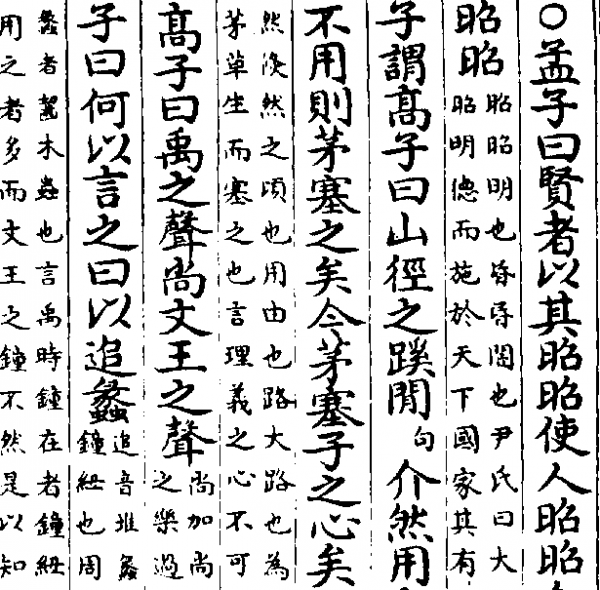 ○孟子曰賢者以其昭昭使人昭昭
昭昭
昭昭明也昏昏闇也尹氏曰大
昭明德而施於天下國家其有
子謂高子曰山徑之蹊閒句介然用
不用則茅塞之矣今茅塞子之心矣
然倐然之頃也用由也路大路也為
茅草生而塞之也言理義之心不可
高子曰禹之聲尚文王之聲
尚加尚
之樂過
子曰何以言之曰以追蠡
追音堆蠡
鐘紐也周
蠡者齧木蟲也言禹時鐘在者鐘紐
用之者多而文王之鐘不然是以知